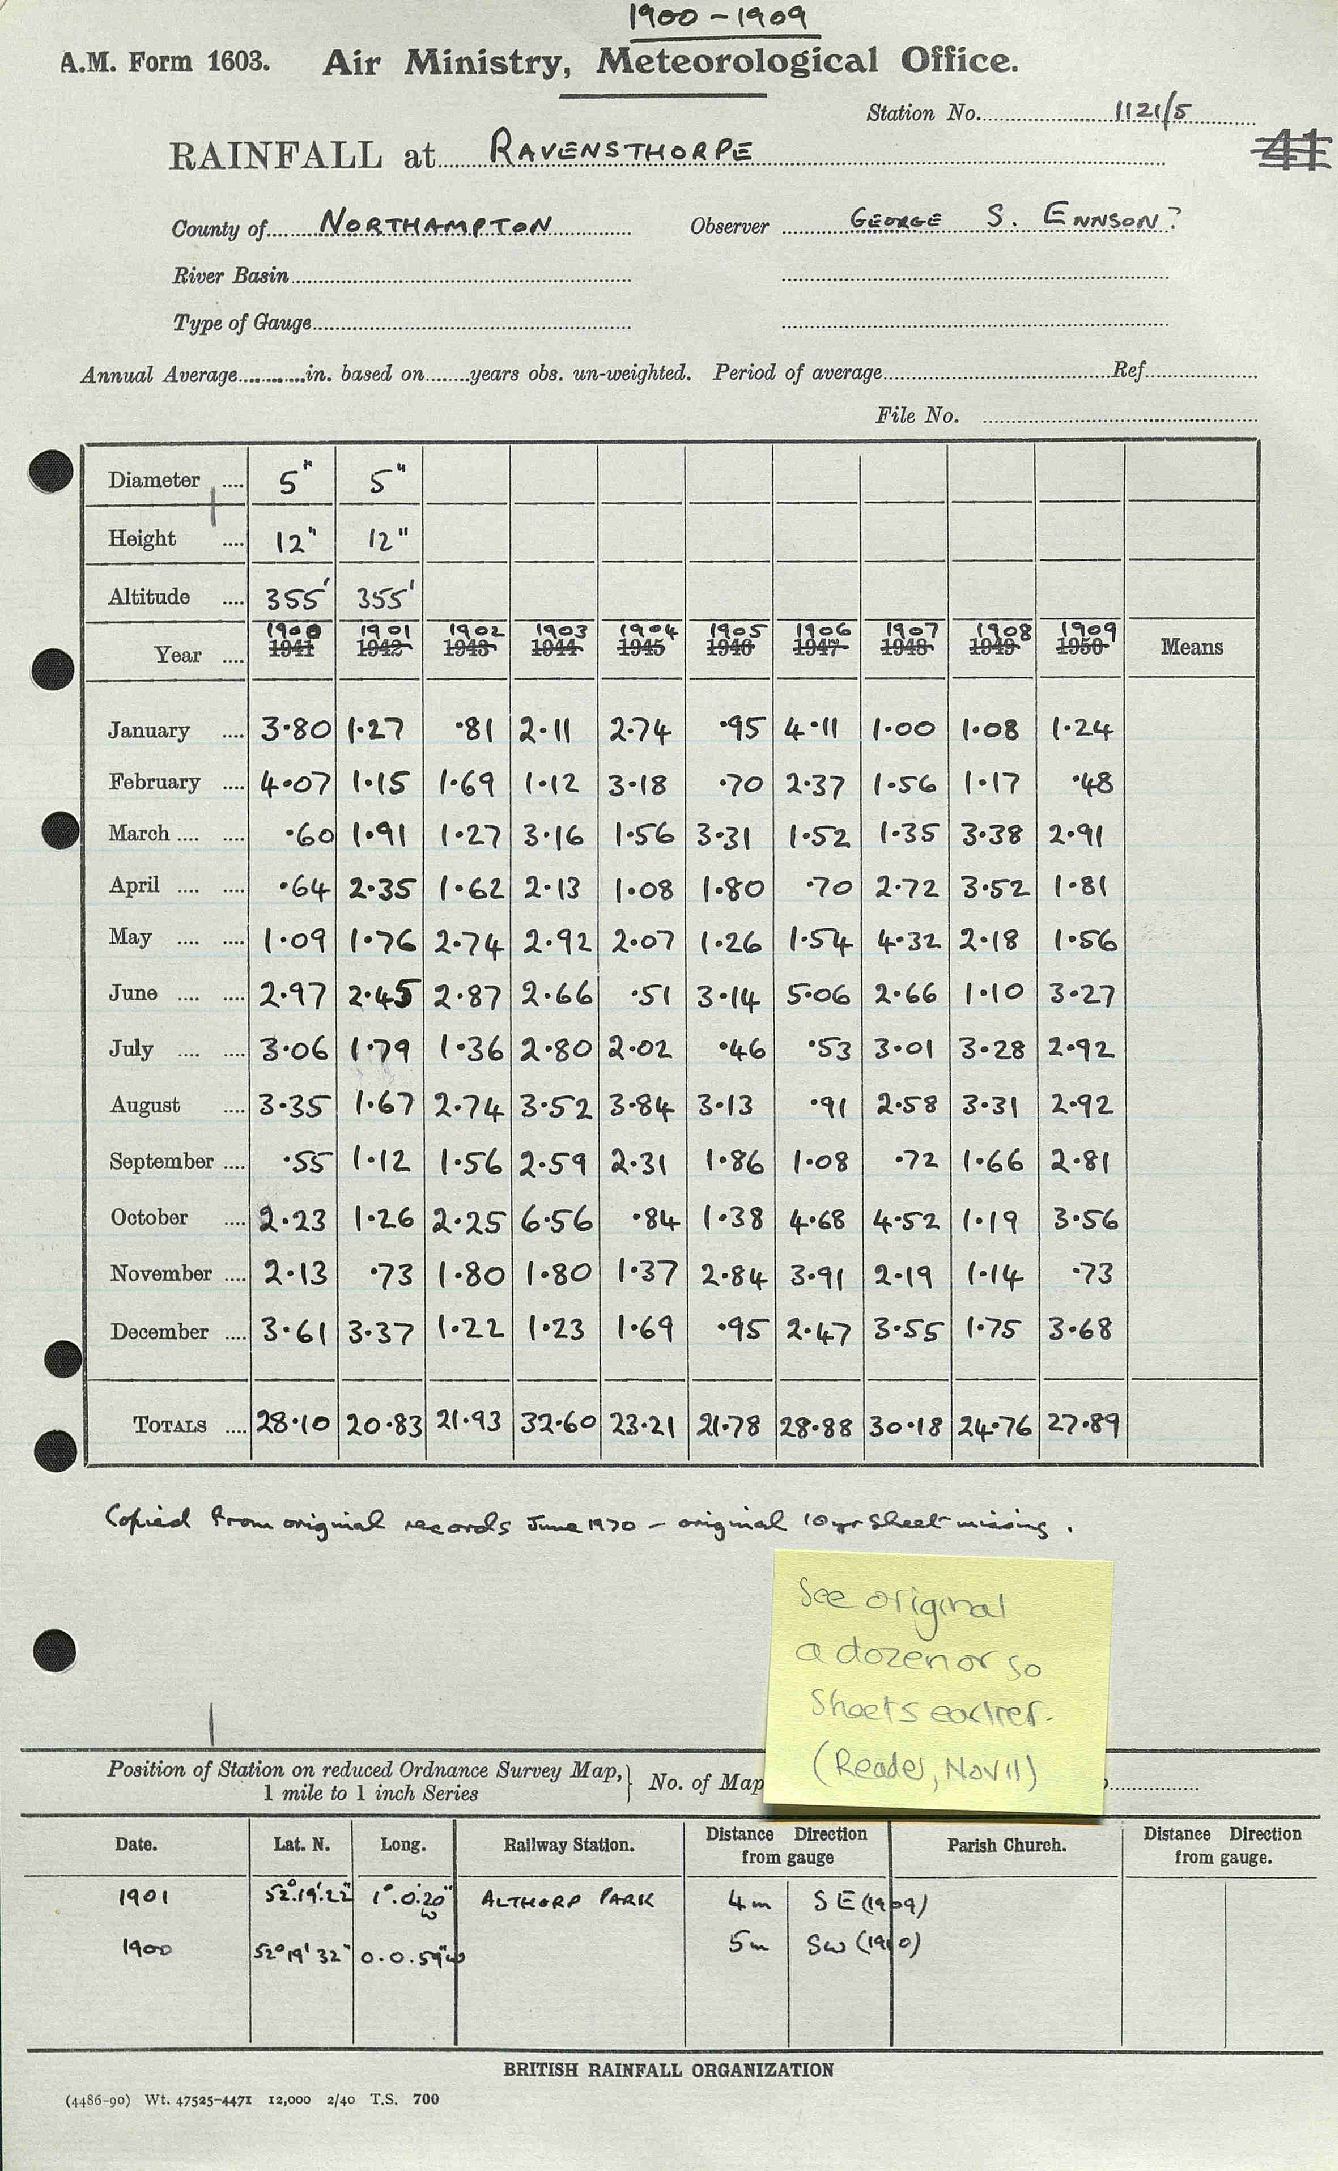 1900 - 1909
A.M. Form 1603. Air Ministry, Meteorological Office.
Station No. 1121/5
RAINFALL at RAVENSTHORPE 41
County of NORTHAMPTON Observer GEORGE S. ENNSON?
River Basin
Type of Gauge
Annual Average in. based on years obs. un-weighted. Period of average Ref
File No.
Diameter 5" 5"
Height 12" 12"
Altitude 355' 355'
1900 1901 1902 1903 1904 1905 1906 1907 1908 1909
Year 1941 1942 1943 1944 1945 1946 1947 1948 1949 1950 Means
January 3.80 1.27 .81 2.11 2.74 .95 4.11 1.00 1.08 1.24
February 4.07 1.15 1.69 1.12 3.18 .70 2.37 1.56 1.17 .48
March .60 1.91 1.27 3.16 1.56 3.31 1.52 1.35 3.38 2.91
April .64 2.35 1.62 2.13 1.08 1.80 .70 2.72 3.52 1.81
May 1.09 1.76 2.74 2.92 2.07 1.26 1.54 4.32 2.18 1.56
June 2.97 2.45 2.87 2.66 .51 3.14 5.06 2.66 1.10 3.27
July 3.06 1.79 1.36 2.80 2.02 .46 .53 3.01 3.28 2.92
August 3.35 1.67 2.74 3.52 3.84 3.13 .91 2.58 3.31 2.92
September .55 1.12 1.56 2.59 2.31 1.86 1.08 .72 1.66 2.81
October 2.23 1.26 2.25 6.56 .84 1.38 4.68 4.52 1.19 3.56
November 2.13 .73 1.80 1.80 1.37 2.84 3.91 2.19 1.14 .73
December 3.61 3.37 1.22 1.23 1.69 .95 2.47 3.55 1.75 3.68
TOTALS 28.10 20.83 21.93 32.60 23.21 21.78 28.88 30.18 24.76 27.89
Copied from original records June 1970 - original 10yr sheet missing.
See original
a dozen or so
sheets earlier.
(Reader, Nov 11)
Position of Station on reduced Ordnance Survey Map,
1 mile to 1 inch Series
No. of Map
Date. Lat. N. Long. Railway Station. Distance Direction from gauge Parish Church. Distance Direction from gauge.
1901 52°.19'.22" 1°.0.'20" W ALTHORP PARK 4m SE (1909)
1900 52° 19' 32" 0.0.59"W 5m SW (1910)
BRITISH RAINFALL ORGANIZATION
(4486-90) Wt. 47525-4471 12,000 2/40 T.S. 700